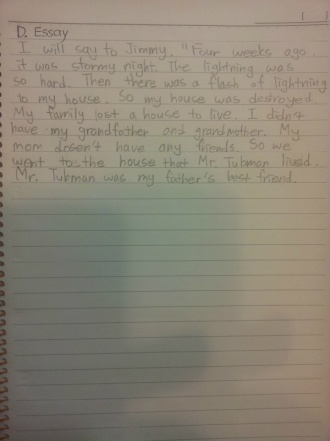 D. Essay
I will say to Jimmy, "Four weeks ago
it was stormy night. The lightning was
so hard. Then there was a flash of lightning
to my house. So my house was destroyed.
My family lost a house to live. I didn't
have my grandfather and grandmother. My
mom doesn't have any friends. So we
went to the house that Mr. Tubman lived.
Mr. Tubman was my father's best friend.